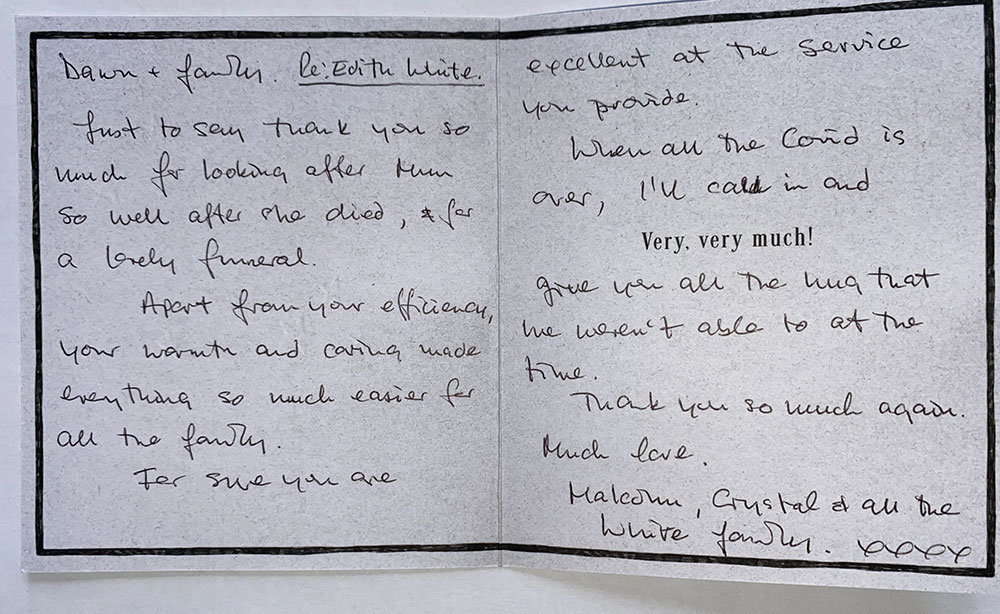 Dawn + family. Re: Edith White.
Just to say thank you so
much for looking after Mum
so well after she died, & for
a lovely funeral.
Apart from your efficiency,
your warmth and caring made
everything so much easier for
all the family.
For sure you are
excellent at the service
you provide.
When all the Covid is
over, I'll call in and
Very, very much!
give you all the hug that
we weren't able to at the
time.
Thank you so much again.
Much love.
Malcolm, Crystal & all the
White family. xxxx